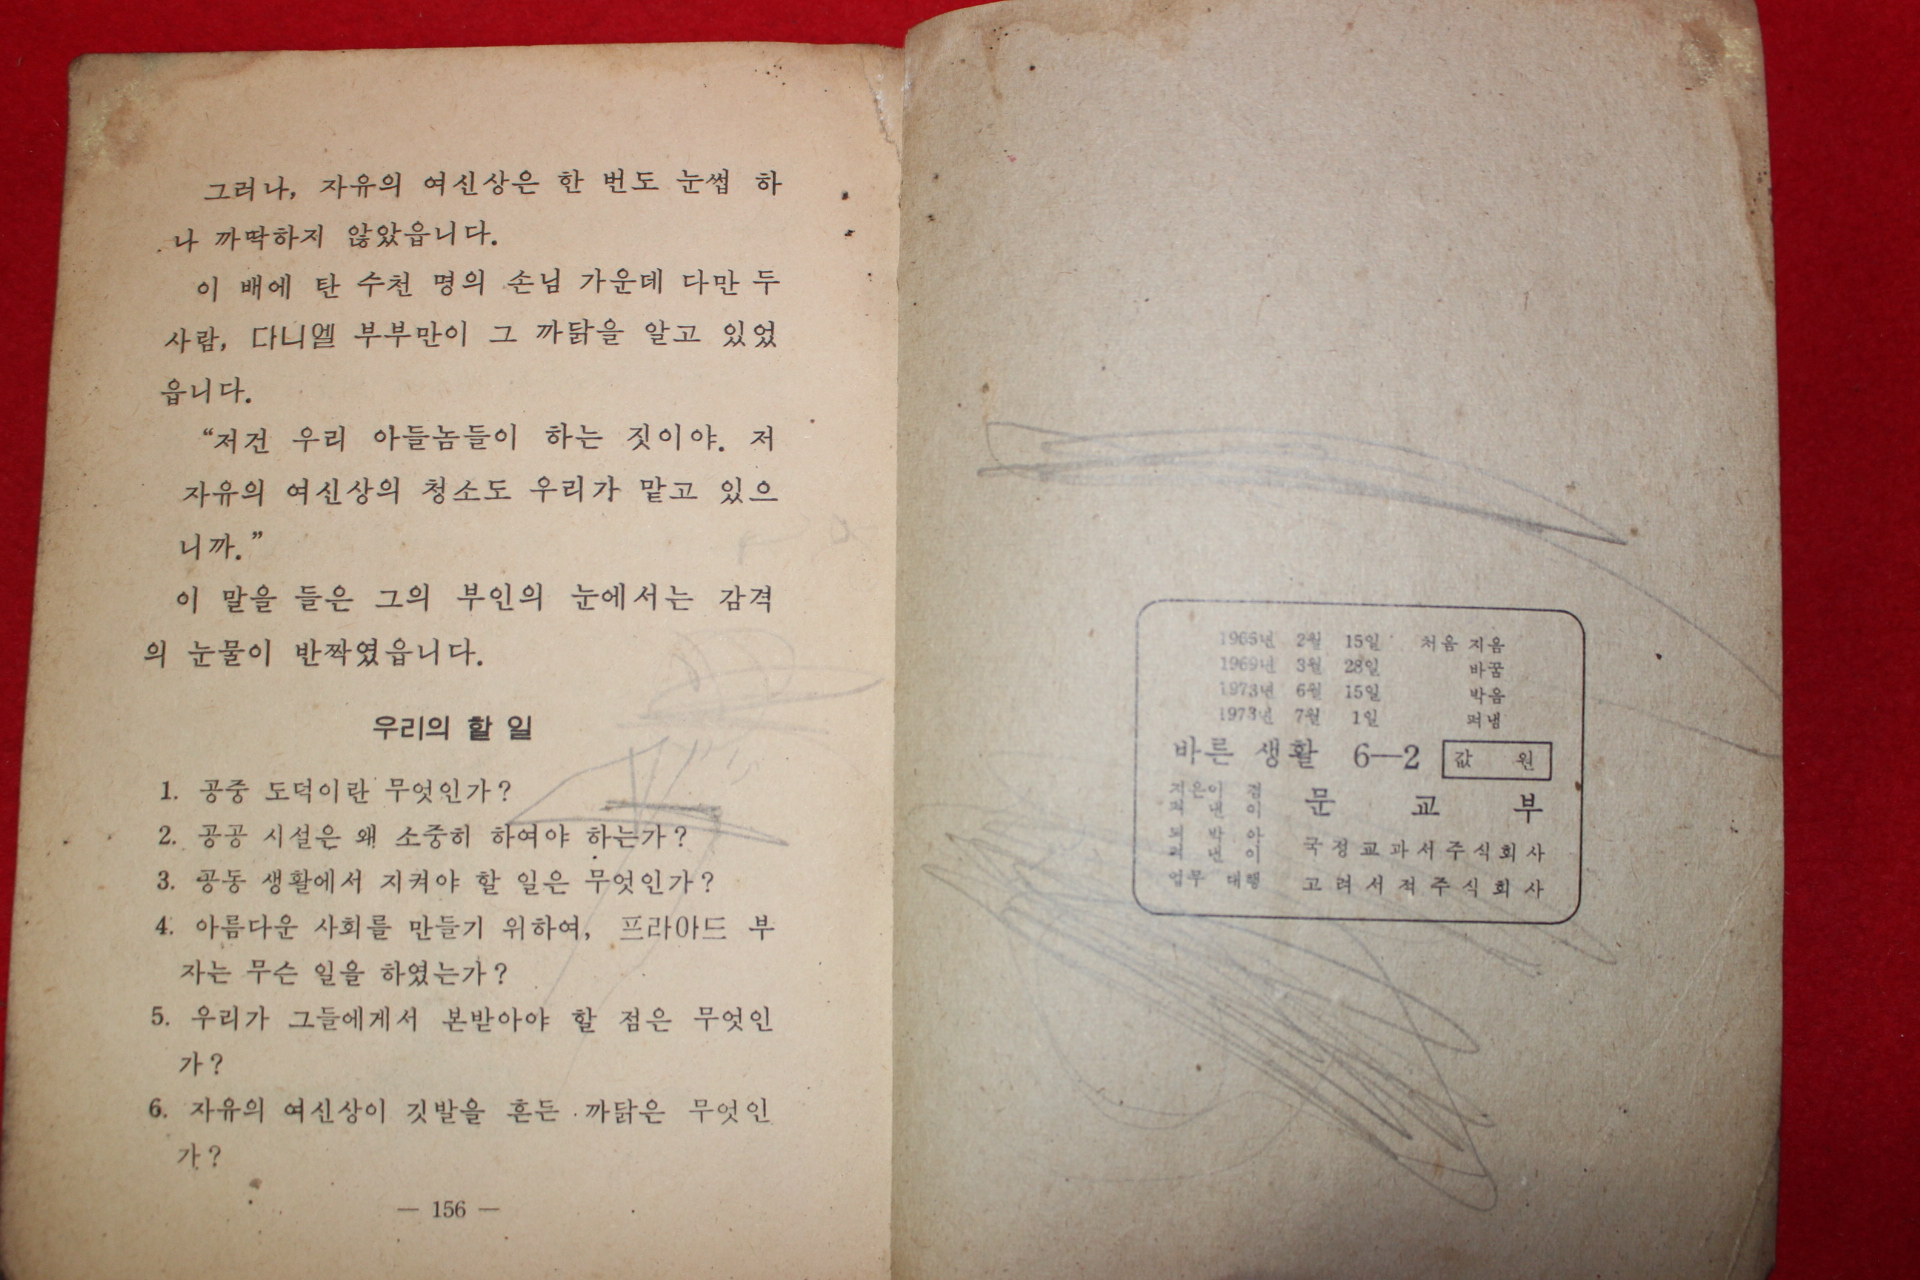 그러나, 자유의 여신상은 한 번도 눈썹 하
나 까딱하지 않았읍니다.
이 배에 탄 수천 명의 손님 가운데 다만 두
사람, 다니엘 부부만이 그 까닭을 알고 있었
읍니다.
“저건 우리 아들놈들이 하는 짓이야. 저
자유의 여신상의 청소도 우리가 맡고 있으
니까.”
이 말을 들은 그의 부인의 눈에서는 감격
의 눈물이 반짝였읍니다.
우리의 할 일
1. 공중 도덕이란 무엇인가?
2. 공공 시설은 왜 소중히 하여야 하는가?
3. 공동 생활에서 지켜야 할 일은 무엇인가?
4. 아름다운 사회를 만들기 위하여, 프라아드 부
자는 무슨 일을 하였는가?
5. 우리가 그들에게서 본받아야 할 점은 무엇인
가?
6. 자유의 여신상이 깃발을 흔든 까닭은 무엇인
가?
— 156 —
1965년 2월 15일 처음 지음
1969년 3월 28일 바꿈
1973년 6월 15일 박음
1973년 7월 1일 펴냄
바른 생활 6—2 값 원
지은이 겸
펴 낸 이 문 교 부
펴 낸 이 국정교과서주식회사
업무 대행 고려서적주식회사